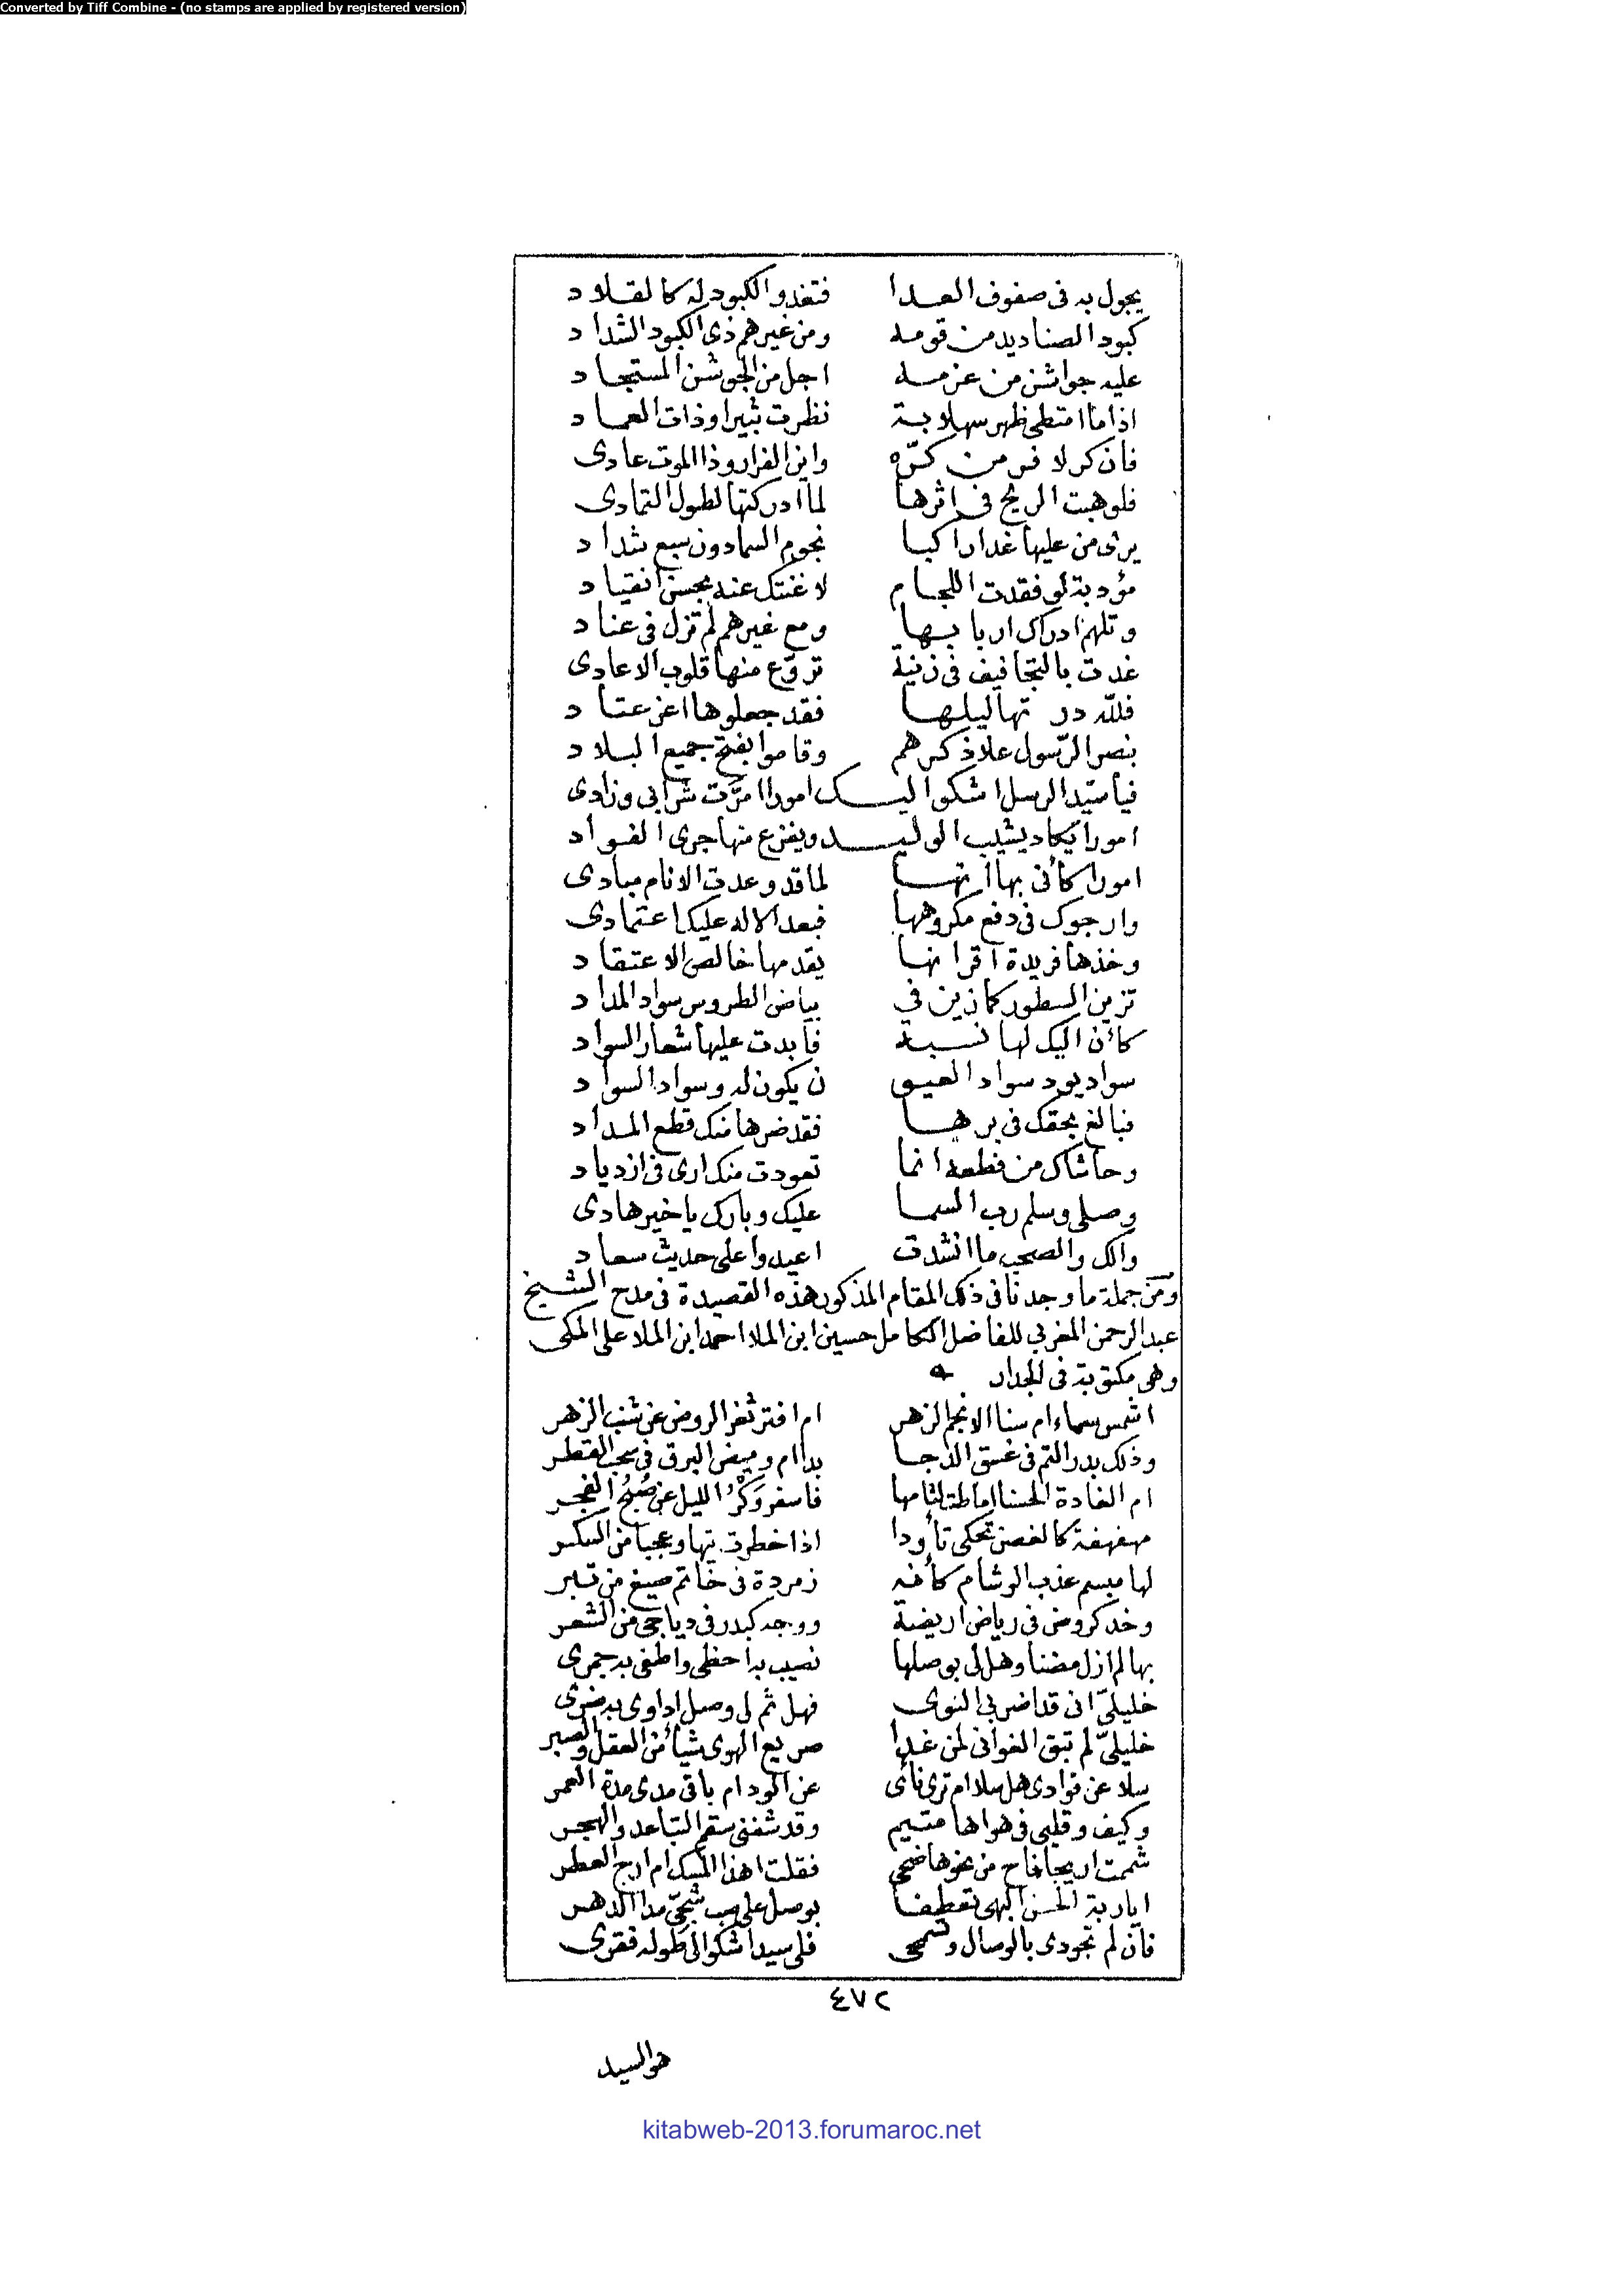 Converted by Tiff Combine - (no stamps are applied by registered version)
يجول به فى صفوف العدا فتغدو الكبود له كالقلاد
كبود الصناديد من قومه ومن غيرهم ذى الكبود الشداد
عليه جواشن من عزمه اجل من الجوشن المستجاد
اذا ما امتطى ظهر سهلابة نظرت ثبيرا وذات العماد
فان كر لا فر من كرّه واين الفرار وذا الموت عادى
فلو هبت الريح فى اثرها لما ادركتها لطول التمادى
يرى من عليها غدا راكبا نجوم السما دون سبع شداد
مؤدبة لو فقدت اللجام لاغنتك عنه بحسن انقياد
وتلهم ادراك اربابها ومع غيرهم لم تزل فى عناد
غدت بالتجافيف فى زنية تروّع منها قلوب الاعادى
فلله در تهاليلها فقد جعلوها اعز عتاد
بنصر الرّسول علا ذكرهم وقاموا بفتح جميع البلاد
فيا سيّد الرسل اشكو اليك امورا امرّت شرابى وزادى
امورا يكاد يشيب الوليد ويفزع منها جرى الفواد
امورا كأنى بها انها لما قد وعدت الانام مبادى
وارجوك فى دفع مكروهها فبعد الاله عليك اعتمادى
وخذها فريدة اقرانها يقدمها خالص الاعتقاد
تزين السطور كما زين فى بياض الطروس سواد المداد
كأن اليك لها نسبة فأبدت عليها شعار السواد
سواد يود سواد العيو ن يكون له وسواد السواد
فبالغ بحقك فى برها فقد ضرها منك قطع المداد
وحاشاك من قطعه انما تعودت منك ارى فى ازدياد
وصلى وسلم رب السما عليك وبارك يا خير هادى
والك والصحب ما انشدت اعيدوا على حديث سعاد
ومن جملة ما وجدنا فى ذلك المقام المذكور هذه القصيدة فى مدح الشيخ
عبد الرحمن المغربى للفاضل الكامل حسين ابن الملا احمد ابن الملا على المكى
وهى مكتوبة فى الجدار
اشمس سماء ام سنا الانجم الزهر ام افتر ثغر الروض عن شنب الزهر
وذلك بدر التم فى غسق الدجا بدا ام وميض البرق فى سحب القطر
ام الغادة الحسنا اماطت لثامها فاسفر وَكْرُ الليل عن صُبْحُ الفجر
مهفهفة كالغصن تحكى تأودا اذا خطرت تيها وعجبا من السكر
لها مبسم عذب الوشام كأنه زمردة فى خاتم صيغ من تبر
وخد كروض فى رياض اريضة ووجه كبدر فى دياجى من الشعر
بها لم ازل مضنا وهل لى بوصلها نصيب به احظى واطفى به جمرى
خليليّ انى قد اضر بى النوى فهل ثم لى وصل اداوى به ضرى
خليليّ لم تبق الغوانى لمن غدا صريع الهوى شيأ من العقل والصبر
سلا عن فوادى هل سلا ام ترى نأى عن الود ام باقى مدى مدة العمر
وكيف وقلبى فى هواها متيم وقد شفنى سقم التباعد والهجر
شممت اريجا فاح من نحوها ضحى فقلت اهذا المسك ام ارج العطر
ايا ربة الحسن البهى تعطفا بوصل على صب شجىّ مدا الدهر
فان لم تجودى بالوصال وتسمحى فلى سيد اشكو الى طوله فقرى
٤٧٢
هو السيد
kitabweb-2013.forumaroc.net